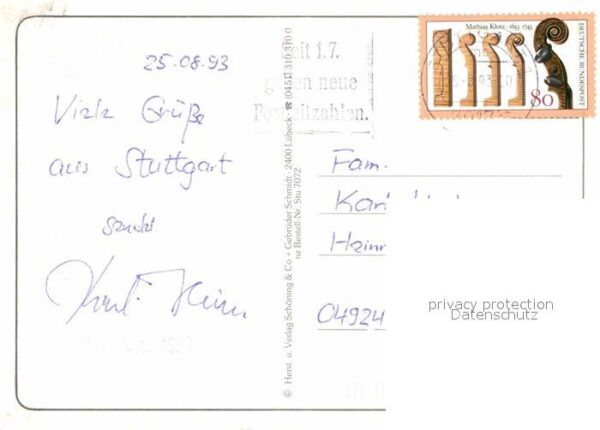 25.08.93
Viele Grüße
aus Stuttgart
sendet
© Herst. u. Verlag Schöning & Co + Gebrüder Schmidt · 2400 Lübeck · ☎ (04 51) 310 310 0
Bestell-Nr. Stu 7072
Seit 1.7.
gelten neue
Postleitzahlen.
Mathias Klotz · 1653-1743
DEUTSCHE BUNDESPOST
80
Fam.
04924
privacy protection
Datenschutz